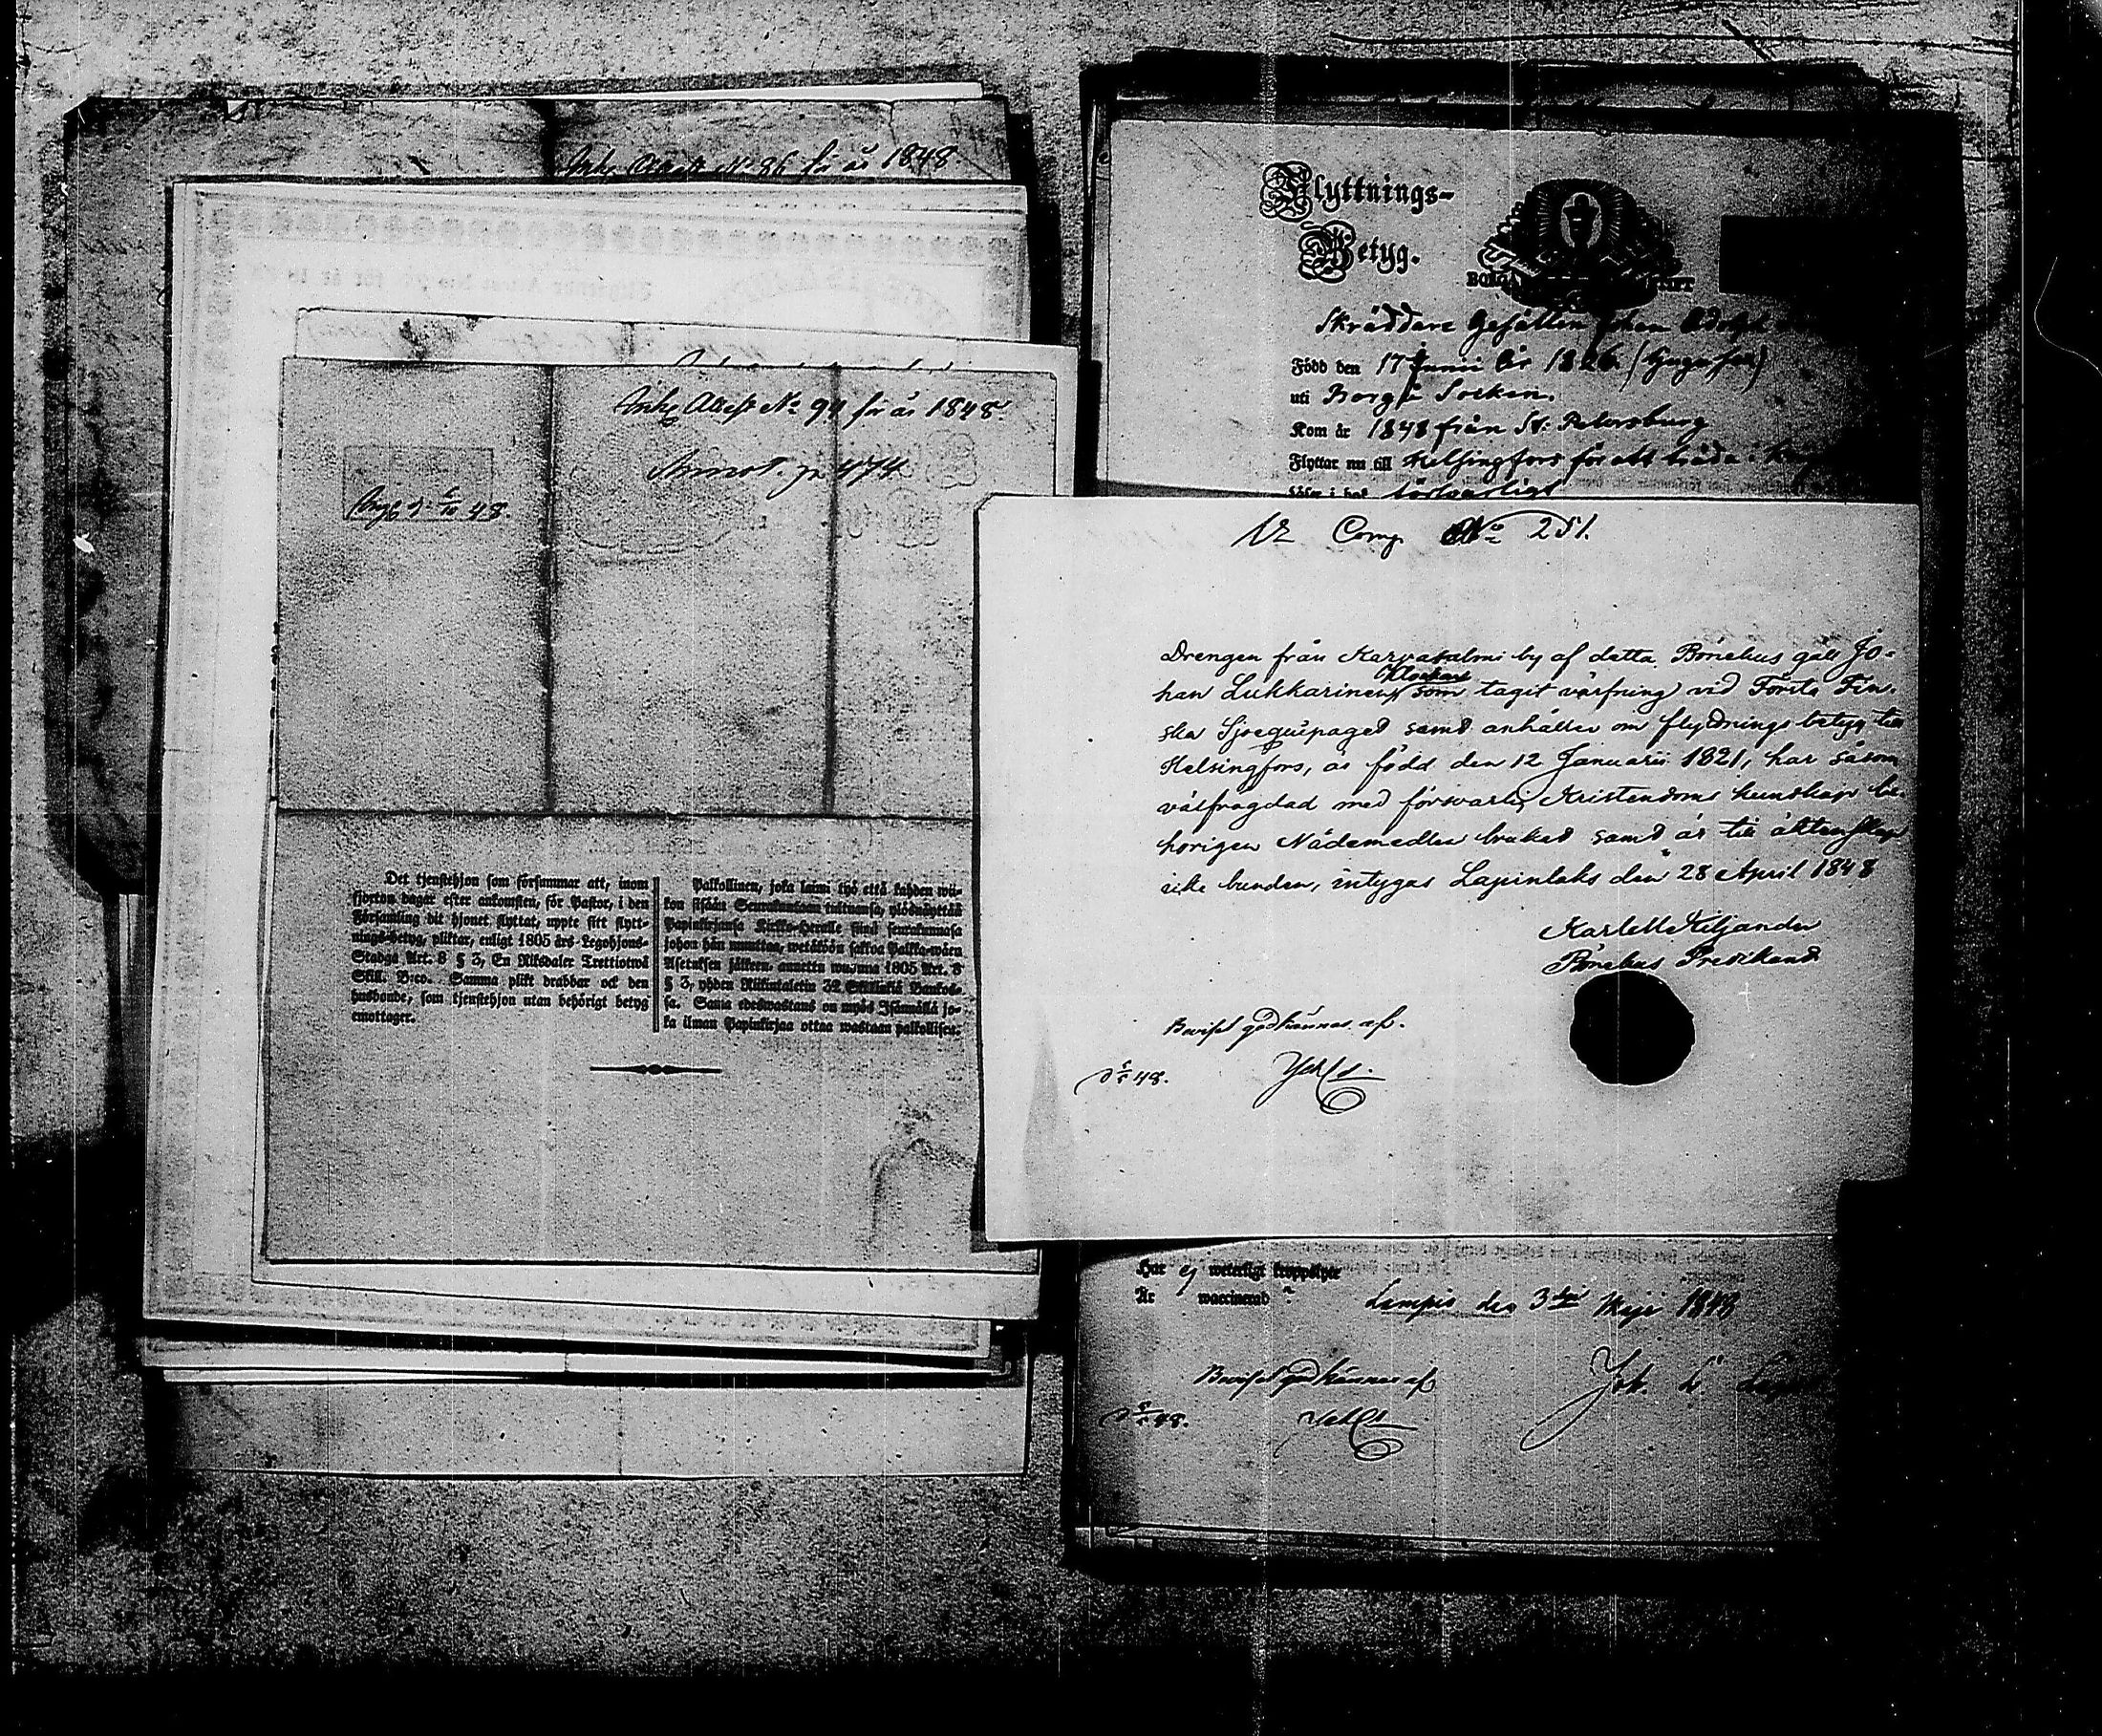 Inhg Attest No 86 för år 1848.
Inhg Attest No 94 för år 1848
Annot. p. 474
48.
Det tjenstehjon som försummar att, inom
fjorton dagar efter ankomsten, för Pastor, i den
Församling dit hjonet flyttat, uppte sitt flytt-
nings-betyg, pliktar, enligt 1805 års Legohjons-
Stadga Art. 8 § 3, En Riksdaler Trettiotwå
Skill. B:co. Samma plikt drabbar ock den
husbonde, som tjenstehjon utan behörigt betyg
emottager.
Palkollinen, joka laimi lyö että kahden wii-
kon sisään Seurakuntaan tultuansa, ylösnäyttää
Papinkirjansa Kirkko-Herralle siinä seurakunnasa
johon hän muuttaa, wetäköön sakkoa Palkka-wäen
Asetuksen jälkeen annettu wuonna 1805 Art. 8
§ 3, yhden Riikintalerin 32 Skillinkiä Bankos-
sa. Sama edeswastaus on myös Isännällä jo-
ka ilman Papinkirjaa ottaa wastaan palkollisen.
Flyttnings-
Betyg.
Skräddare Gesällen Johan Adolph
Född den 17 Junii År 1826.
uti Borgå Socken.
Kom år 1848 från St: Petersburg
Flyttar nu till Helsingfors för att träda i
försvarligt
Comp. No 251.
Drengen från Karvasalmi by af detta Bönehus gäll Jo-
han Lukkarinen Klockars som tagit värfning vid Första Fin-
ska Sjöequipaget samt anhåller om flyttnings betyg till
Helsingfors, är född den 12 Januarii 1821, har såsom
välfragdad med försvarlig Kristendoms kunskap be-
hörigen Nådemedlen brukat samt är till äktenskap
icke bunden, intygas Lapinlaks den 28 April 1848
Karl Kiljander
Bönehus Predikant
Beviset godkännes af.
48.
Har ej weterligt kroppslyte
Är waccinerad
Lampis den 3 Maji 1848
Beviset godkännes af
48.
Joh.